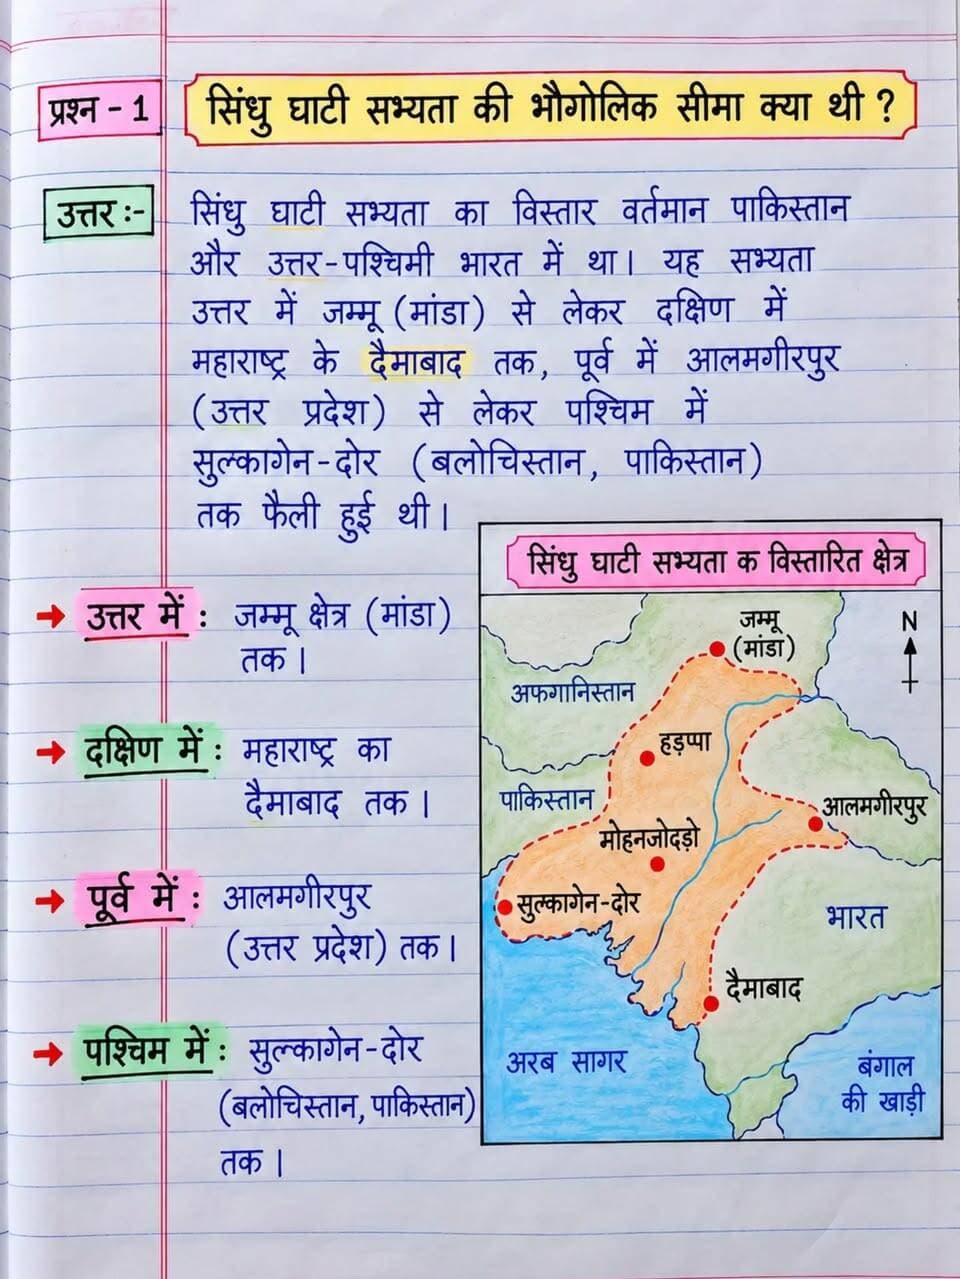 प्रश्न - 1
सिंधु घाटी सभ्यता की भौगोलिक सीमा क्या थी ?
उत्तर :-
सिंधु घाटी सभ्यता का विस्तार वर्तमान पाकिस्तान
और उत्तर-पश्चिमी भारत में था। यह सभ्यता
उत्तर में जम्मू (मांडा) से लेकर दक्षिण में
महाराष्ट्र के दैमाबाद तक, पूर्व में आलमगीरपुर
(उत्तर प्रदेश) से लेकर पश्चिम में
सुल्कागेन-दोर (बलोचिस्तान, पाकिस्तान)
तक फैली हुई थी।
→ उत्तर में : जम्मू क्षेत्र (मांडा)
तक।
→ दक्षिण में : महाराष्ट्र का
दैमाबाद तक।
→ पूर्व में : आलमगीरपुर
(उत्तर प्रदेश) तक।
→ पश्चिम में : सुल्कागेन-दोर
(बलोचिस्तान, पाकिस्तान)
तक।
सिंधु घाटी सभ्यता क विस्तारित क्षेत्र
जम्मू
(मांडा)
N
अफगानिस्तान
हड़प्पा
पाकिस्तान
आलमगीरपुर
मोहनजोदड़ो
सुल्कागेन-दोर
भारत
दैमाबाद
अरब सागर
बंगाल
की खाड़ी